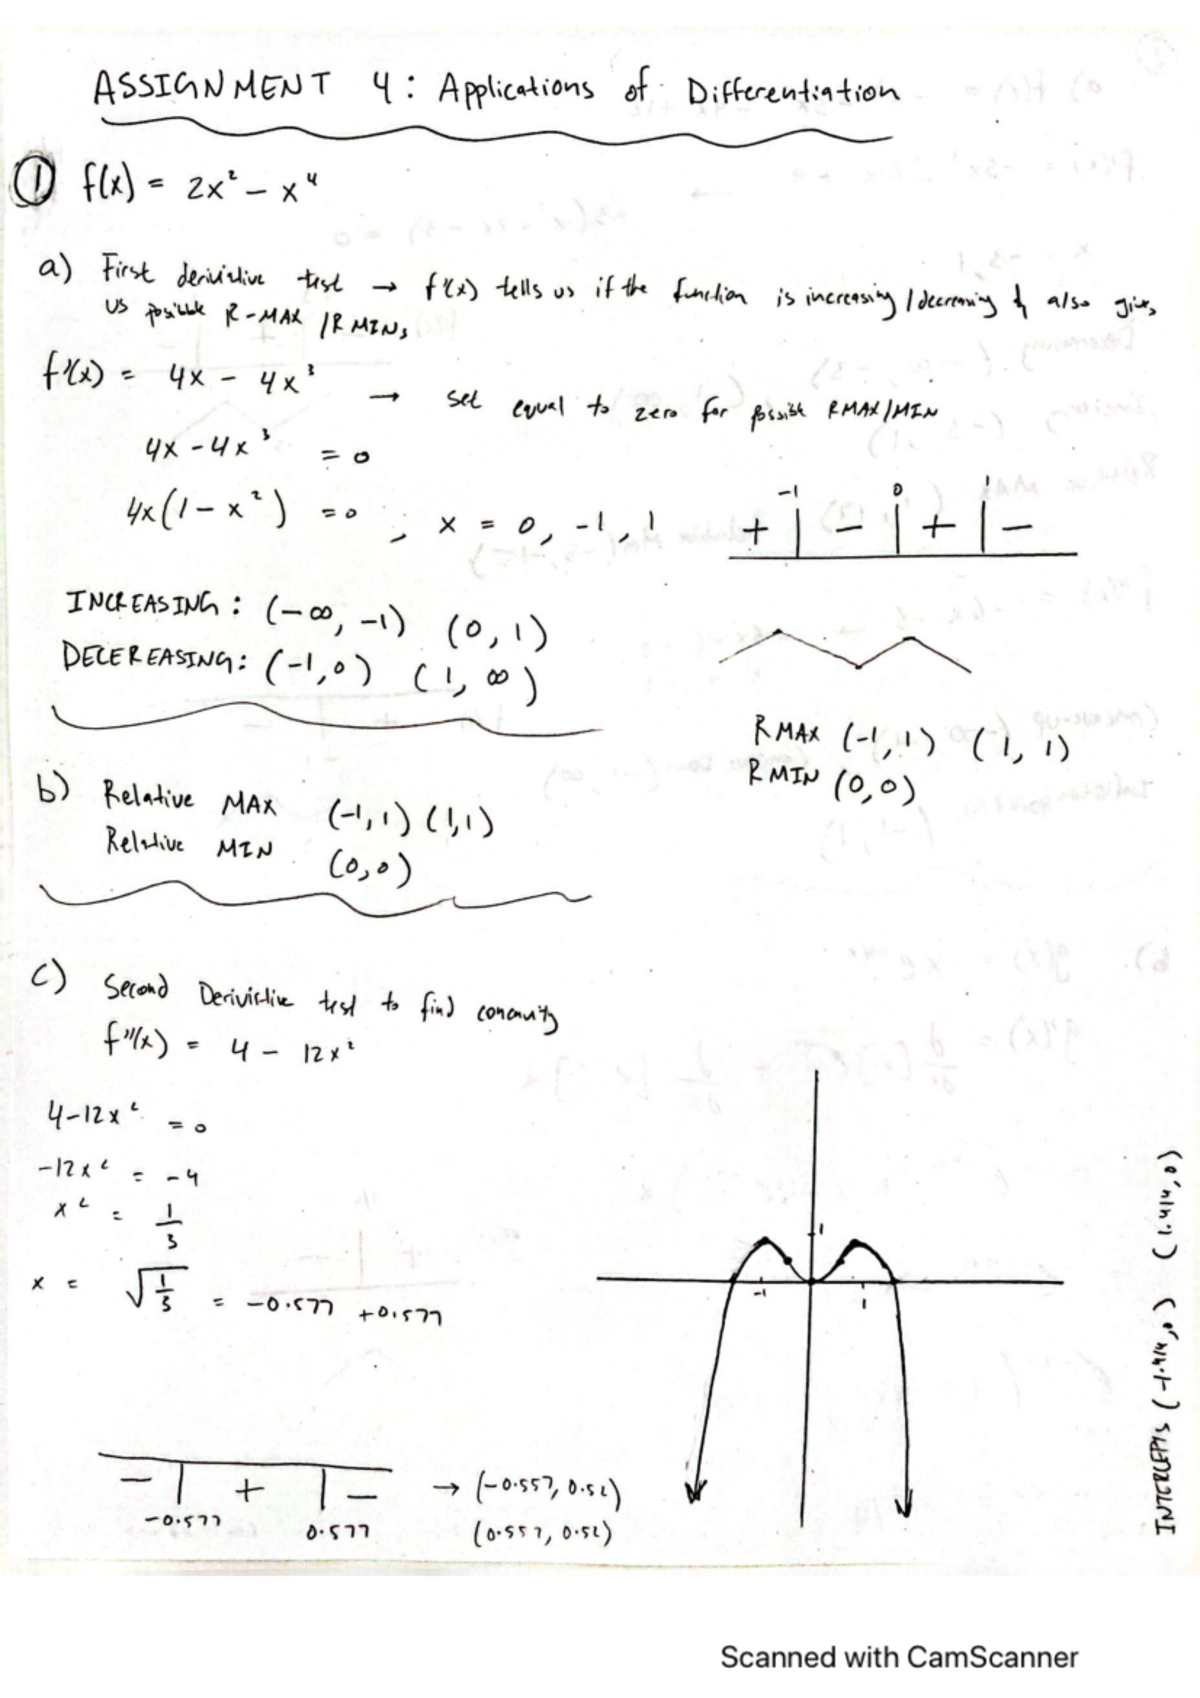 ASSIGNMENT 4: Applications of Differentiation
① f(x) = 2x² - x⁴
a) First derivitive test → f'(x) tells us if the function is increasing / decreasing & also gives
us possible R-MAX / R MINs
f'(x) = 4x - 4x³ → set equal to zero for possible RMAX/MIN
4x - 4x³ = 0
4x(1 - x²) = 0 , x = 0, -1, 1
-1 0 1
+ | - | + | -
INCREASING: (-∞, -1) (0, 1)
DECEREASING: (-1, 0) (1, ∞)
R MAX (-1, 1) (1, 1)
R MIN (0, 0)
b) Relative MAX (-1, 1) (1, 1)
Relative MIN (0, 0)
c) Second Derivitive test to find concavity
f''(x) = 4 - 12x²
4-12x² = 0
-12x² = -4
x² = 1/3
x = √1/3 = -0.577 +0.577
- | + | -
-0.577 0.577
→ (-0.557, 0.52)
(0.557, 0.52)
1
-1 1
INTERCEPTS (-1.414, 0) (1.414, 0)
Scanned with CamScanner